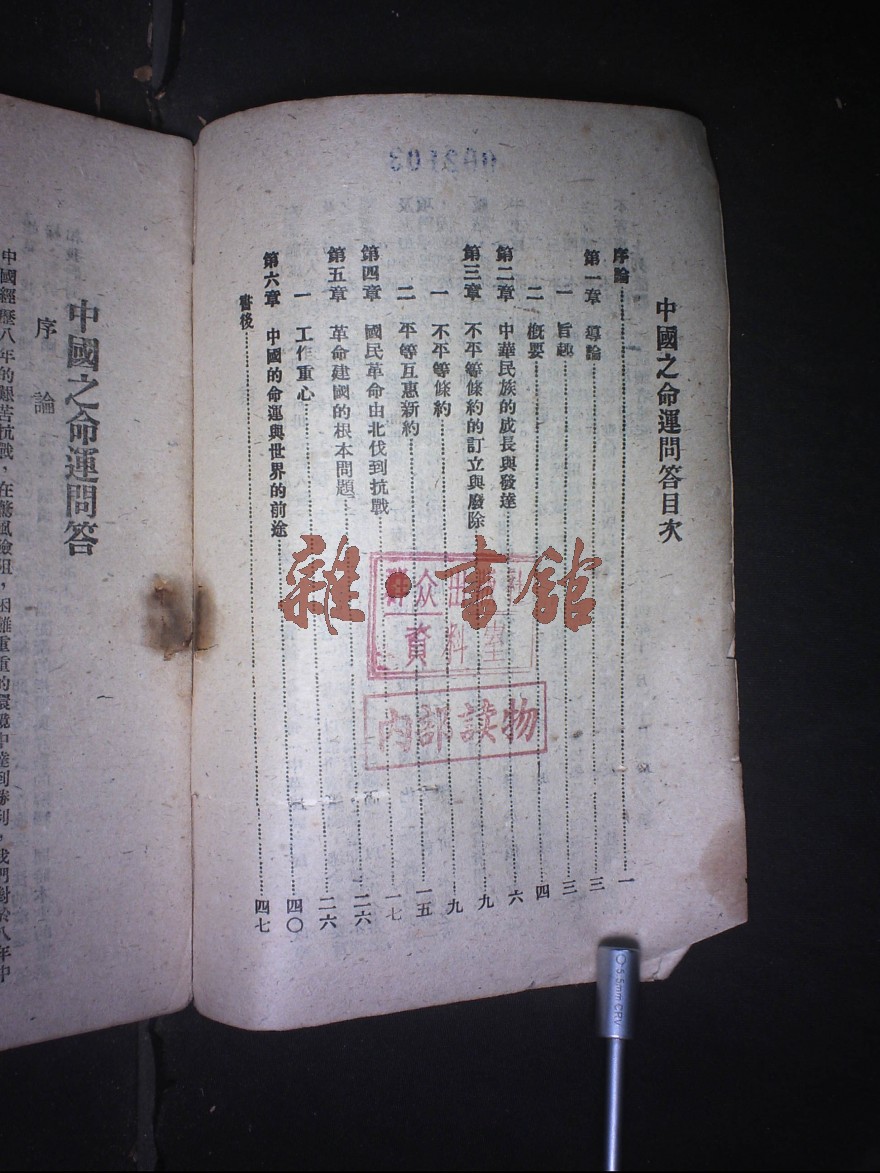 中國之命運問答目次
序論……一
第一章 導論……三
一 旨趣……三
二 概要……四
第二章 中華民族的成長與發達……六
第三章 不平等條約的訂立與廢除……九
一 不平等條約……九
二 平等互惠新約……一五
第四章 國民革命由北伐到抗戰……一七
第五章 革命建國的根本問題……二六
一 工作重心……二六
第六章 中國的命運與世界的前途……四〇
書後……四七
群众出版社
資料室
内部读物
雜·書館
中國之命運問答
序論
中國經歷八年的艱苦抗戰，在驚風險阻，困難重重的環境中達到勝利，我們對於八年中
5.5mm CRV